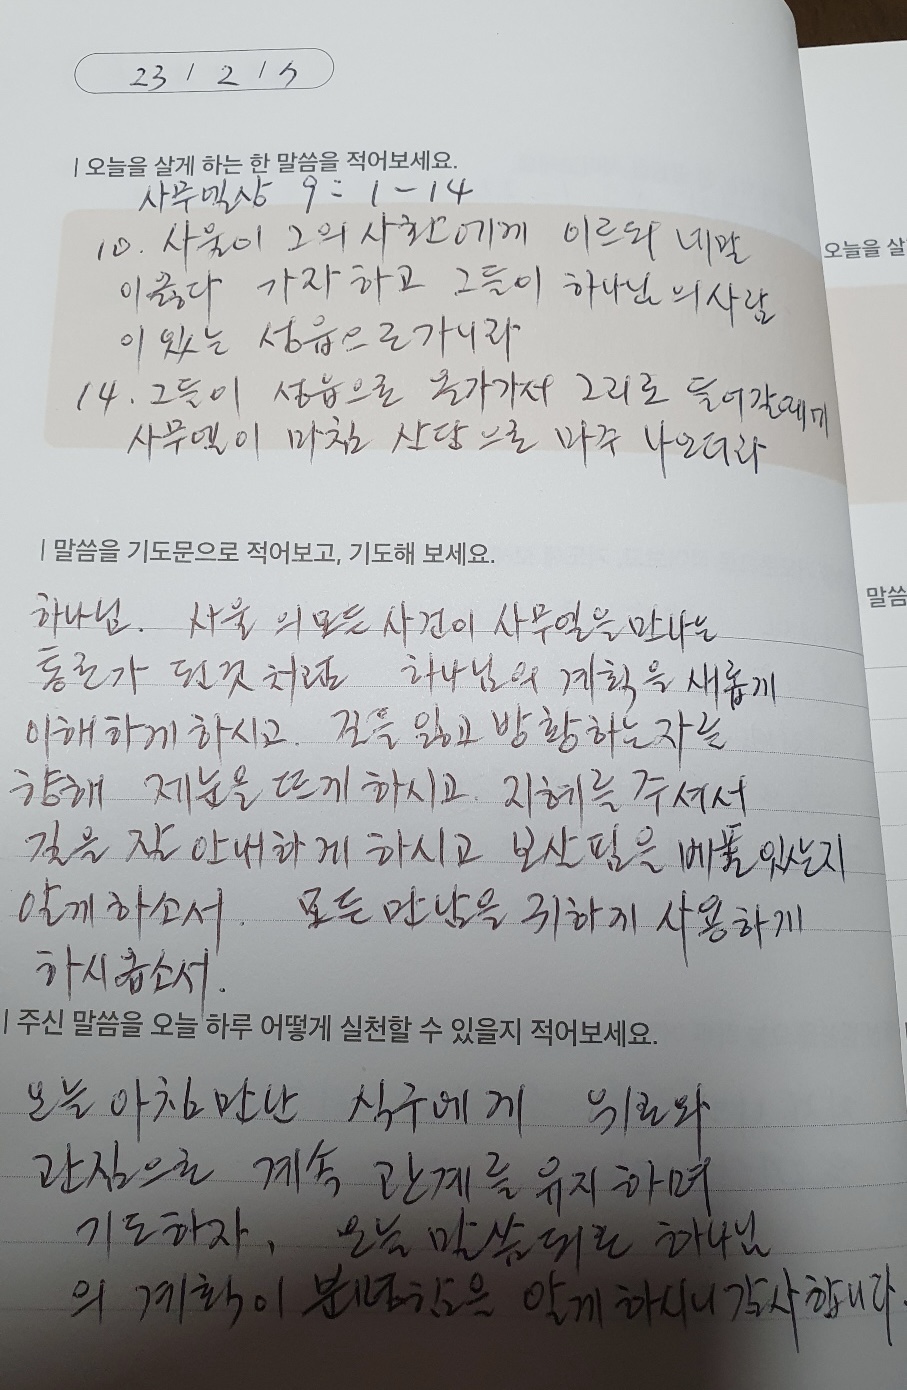 23 / 2 / 7
| 오늘을 살게 하는 한 말씀을 적어보세요.
사무엘상 9 : 1 - 14
10. 사울이 그의 사환에게 이르되 네말
이옳다 가자 하고 그들이 하나님의사람
이 있는 성읍으로가니라
14. 그들이 성읍으로 올라가서 그리로 들어갈때에
사무엘이 마침 산당으로 마주 나오더라
오늘을 살
| 말씀을 기도문으로 적어보고, 기도해 보세요.
말씀
하나님. 사울의모든 사건이 사무엘을 만나는
통로가 된것 처럼 하나님의 계획을 새롭게
이해하게 하시고. 길을 잃고 방황하는자를
향해 제눈을 뜨게 하시고. 지혜를 주셔서
길을 잘 안내하게 하시고 보살핌을 베풀 있는지
알게 하소서. 모든 만남을 귀하게 사용하게
하시옵소서.
| 주신 말씀을 오늘 하루 어떻게 실천할 수 있을지 적어보세요.
오늘 아침만난 식구에게 위로와
관심으로 계속 관계를 유지하며
기도하자, 오늘 말씀 하나님
의 계획이 알게 하시니 감사합니다.